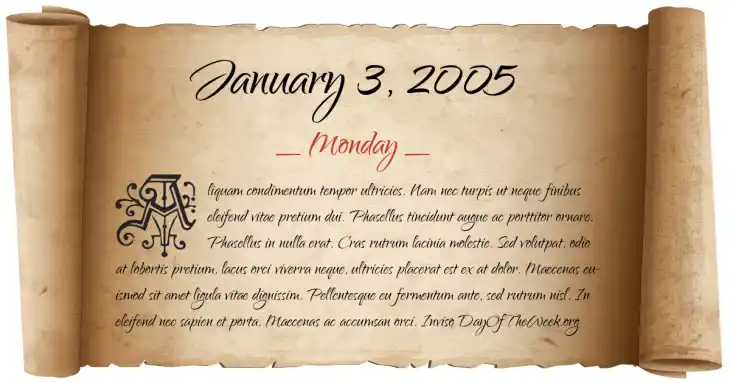 January 3, 2005
_ Monday _
Aliquam condimentum tempor ultricies. Nam nec turpis ut neque finibus
eleifend vitae pretium dui. Phasellus tincidunt augue ac porttitor ornare.
Phasellus in nulla erat. Cras rutrum lacinia molestie. Sed volutpat, odio
at lobortis pretium, lacus orci viverra neque, ultricies placerat est ex at dolor. Maecenas eu-
ismod sit amet ligula vitae dignissim. Pellentesque eu fermentum ante, sed rutrum nisl. In
eleifend nec sapien et porta. Maecenas ac accumsan orci. Inviso DayOfTheWeek.org